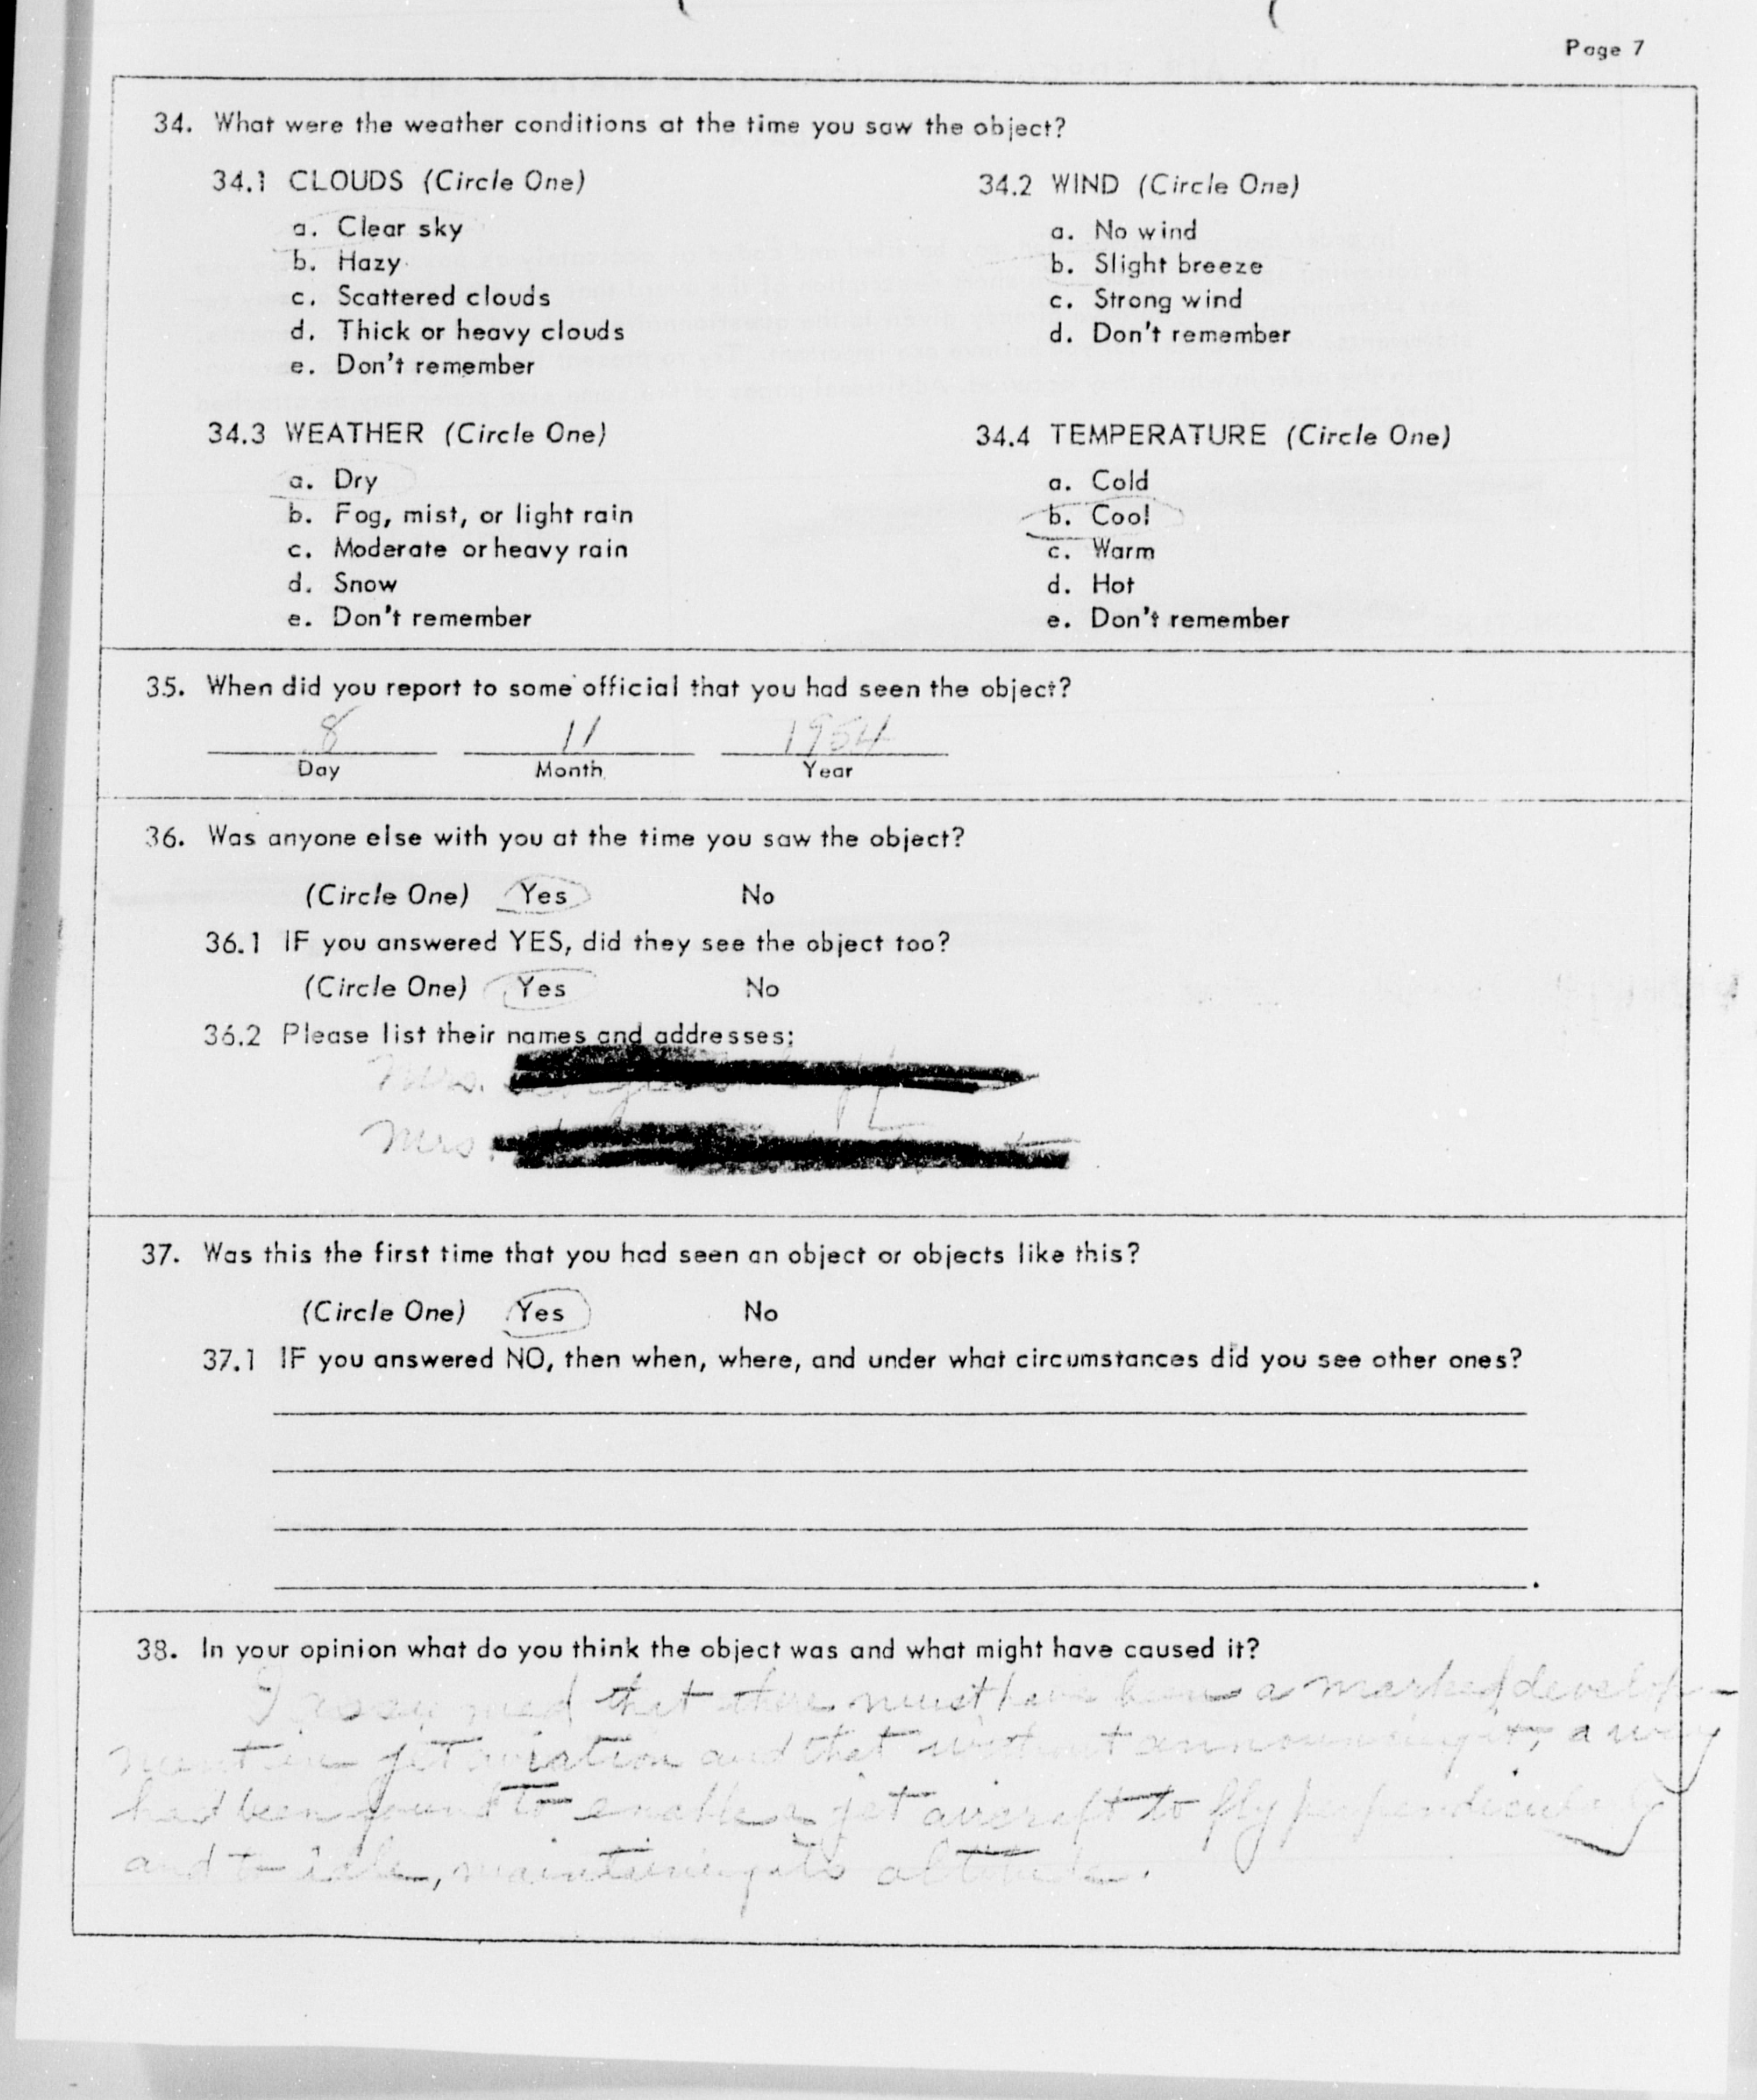 Page 7
34. What were the weather conditions at the time you saw the object?
34.1 CLOUDS (Circle One)
a. Clear sky
b. Hazy
c. Scattered clouds
d. Thick or heavy clouds
e. Don't remember
34.2 WIND (Circle One)
a. No wind
b. Slight breeze
c. Strong wind
d. Don't remember
34.3 WEATHER (Circle One)
a. Dry
b. Fog, mist, or light rain
c. Moderate or heavy rain
d. Snow
e. Don't remember
34.4 TEMPERATURE (Circle One)
a. Cold
b. Cool
c. Warm
d. Hot
e. Don't remember
35. When did you report to some official that you had seen the object?
8 11 1954
Day Month Year
36. Was anyone else with you at the time you saw the object?
(Circle One) Yes No
36.1 IF you answered YES, did they see the object too?
(Circle One) Yes No
36.2 Please list their names and addresses:
Mrs.
Mrs.
37. Was this the first time that you had seen an object or objects like this?
(Circle One) Yes No
37.1 IF you answered NO, then when, where, and under what circumstances did you see other ones?
38. In your opinion what do you think the object was and what might have caused it?
I assumed that there must have been a marked develop-
ment in jet aviation and that without announcing it, a way
had been found to enable a jet aircraft to fly perpendicularly
and to idle, maintaining its altitude.